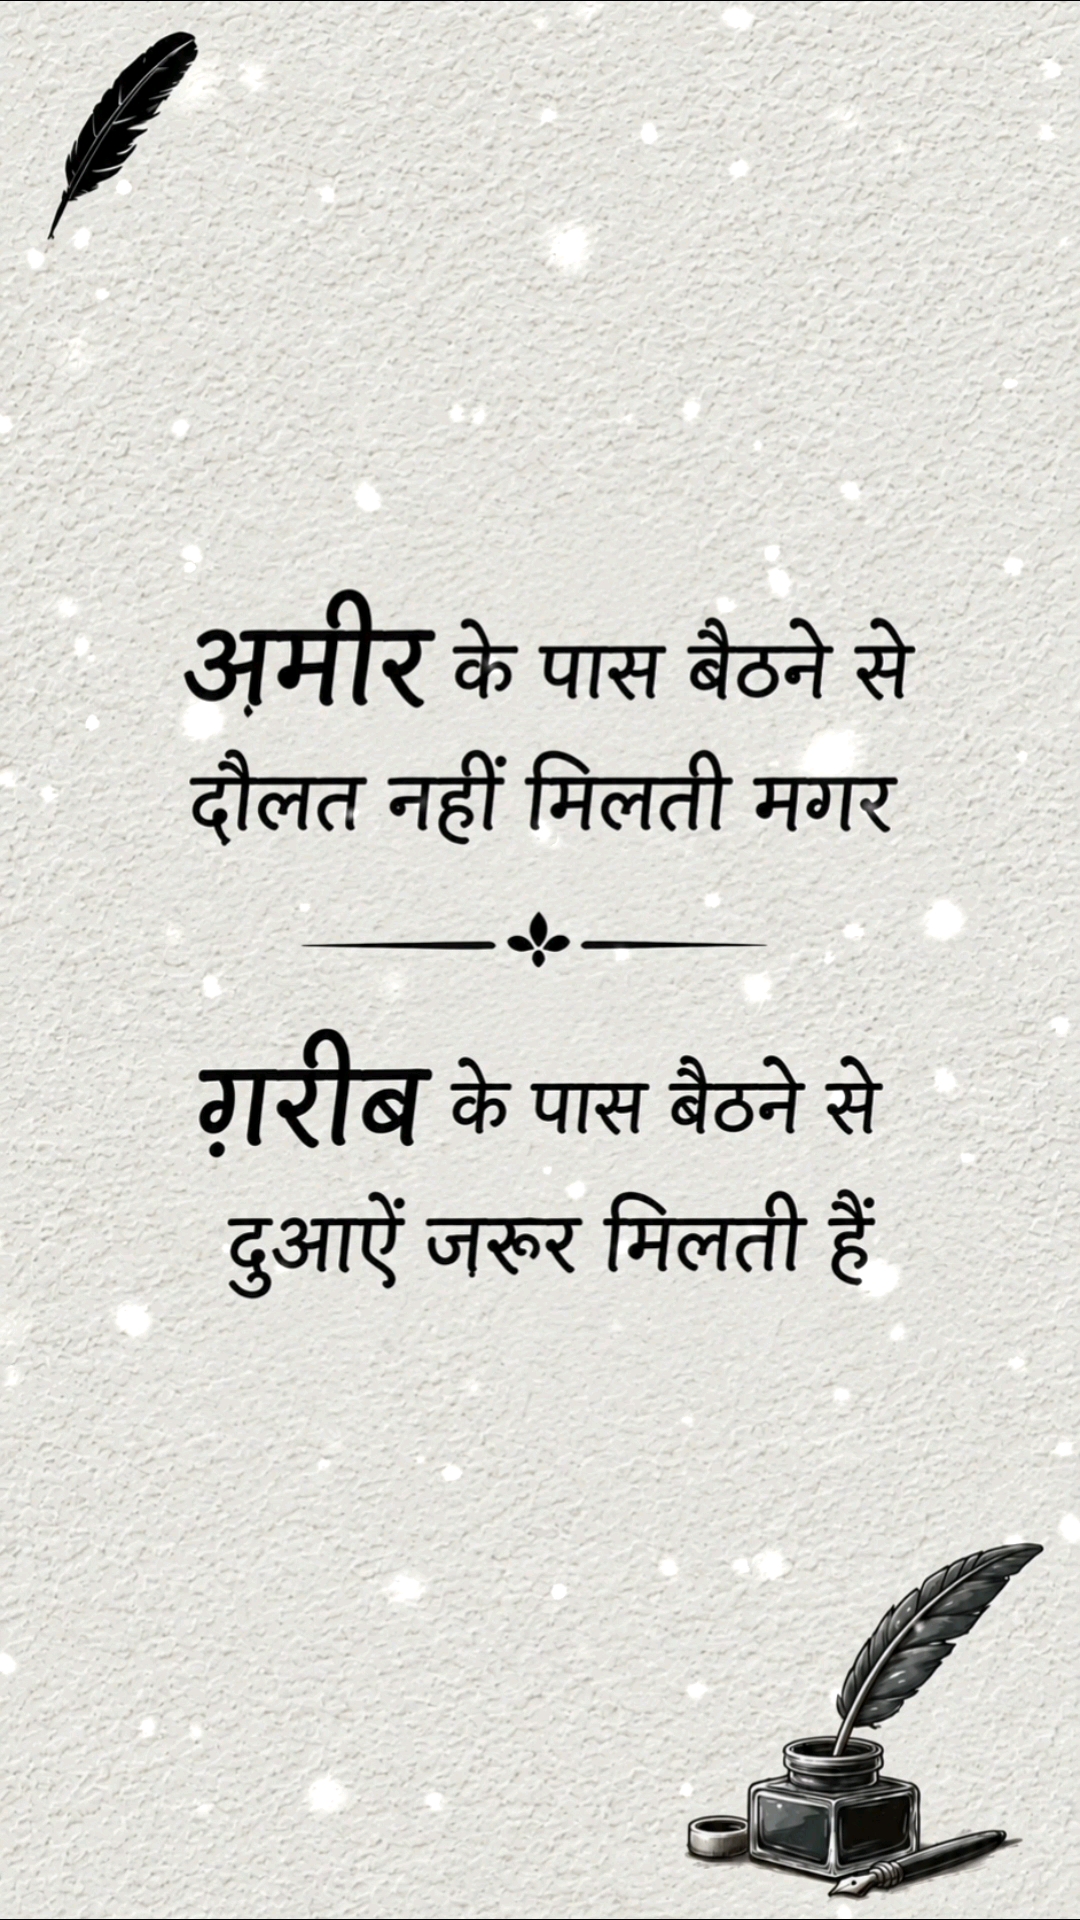 अ़मीर के पास बैठने से
दौलत नहीं मिलती मगर
ग़रीब के पास बैठने से
दुआऐं ज़रूर मिलती हैं